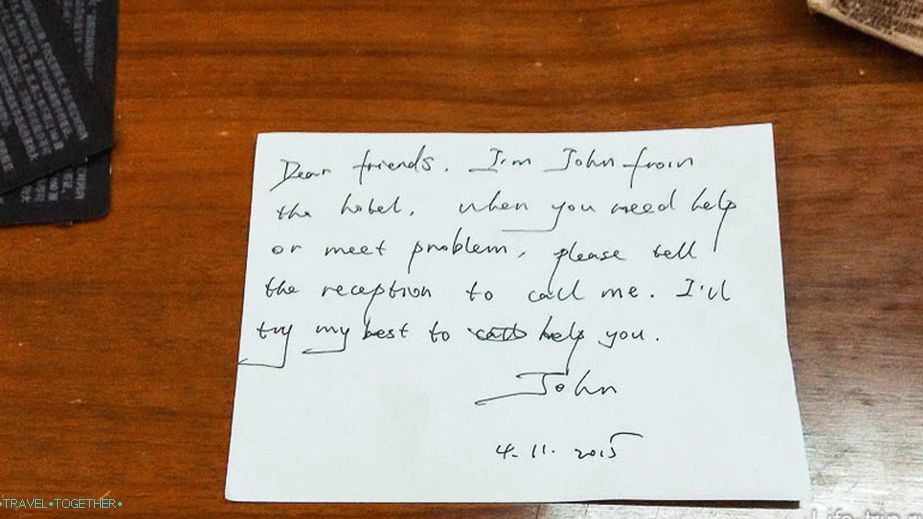 Dear friends. I'm John from
the hotel. When you need help
or meet problem, please tell
the reception to call me. I'll
try my best to call help you.
John
4.11.2015
•TRAVEL•TOGETHER•